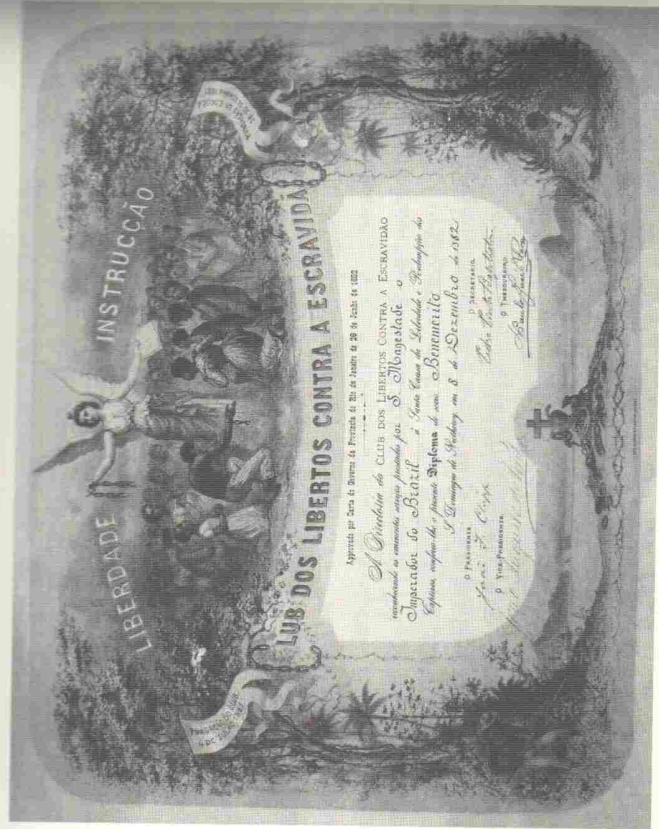 LIBERDADE INSTRUCÇÃO
CLUB DOS LIBERTOS CONTRA A ESCRAVIDÃO
Approvado por Carta do Governo da Provincia do Rio de Janeiro de 20 de Junho de 1882
A Directoria do CLUB DOS LIBERTOS CONTRA A ESCRAVIDÃO
reconhecendo os eminentes serviços prestados por S. Magestade o
Imperador do Brazil á Santa Causa da Liberdade e Redempção dos
Captivos, confere-lhe o presente Diploma de seu Benemerito
S. Domingos de Nictheroy em 8 de Dezembro de 1882
O PRESIDENTE
João F. Clapp
O VICE-PRESIDENTE
O SECRETARIO
O THESOUREIRO